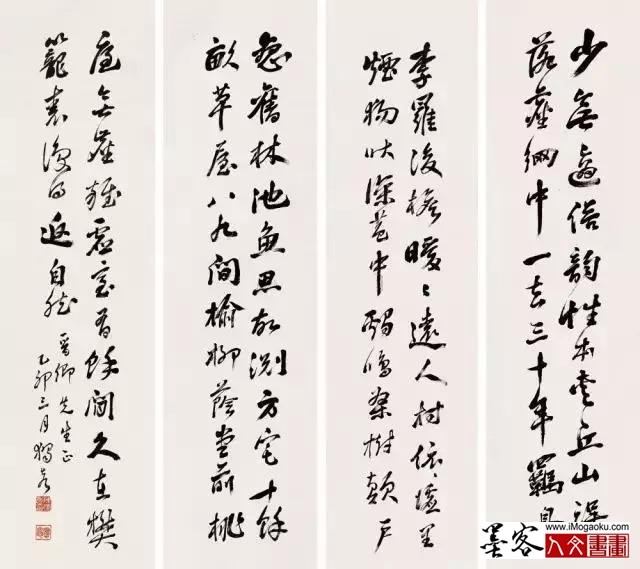 少無適俗韻性本愛丘山誤
落塵網中一去三十年羈鳥
李羅後檐曖〻遠人村依〻墟里
煙狗吠深巷中鷄鳴桑樹顛戶
戀舊林池魚思故淵方宅十餘
畝草屋八九間榆柳蔭堂前桃
庭無塵雜虛室有餘閒久在樊
籠裏復得返自然
晉卿先生正
乙卯三月獨秀
墨客
www.iMogaoku.com
人文書畫